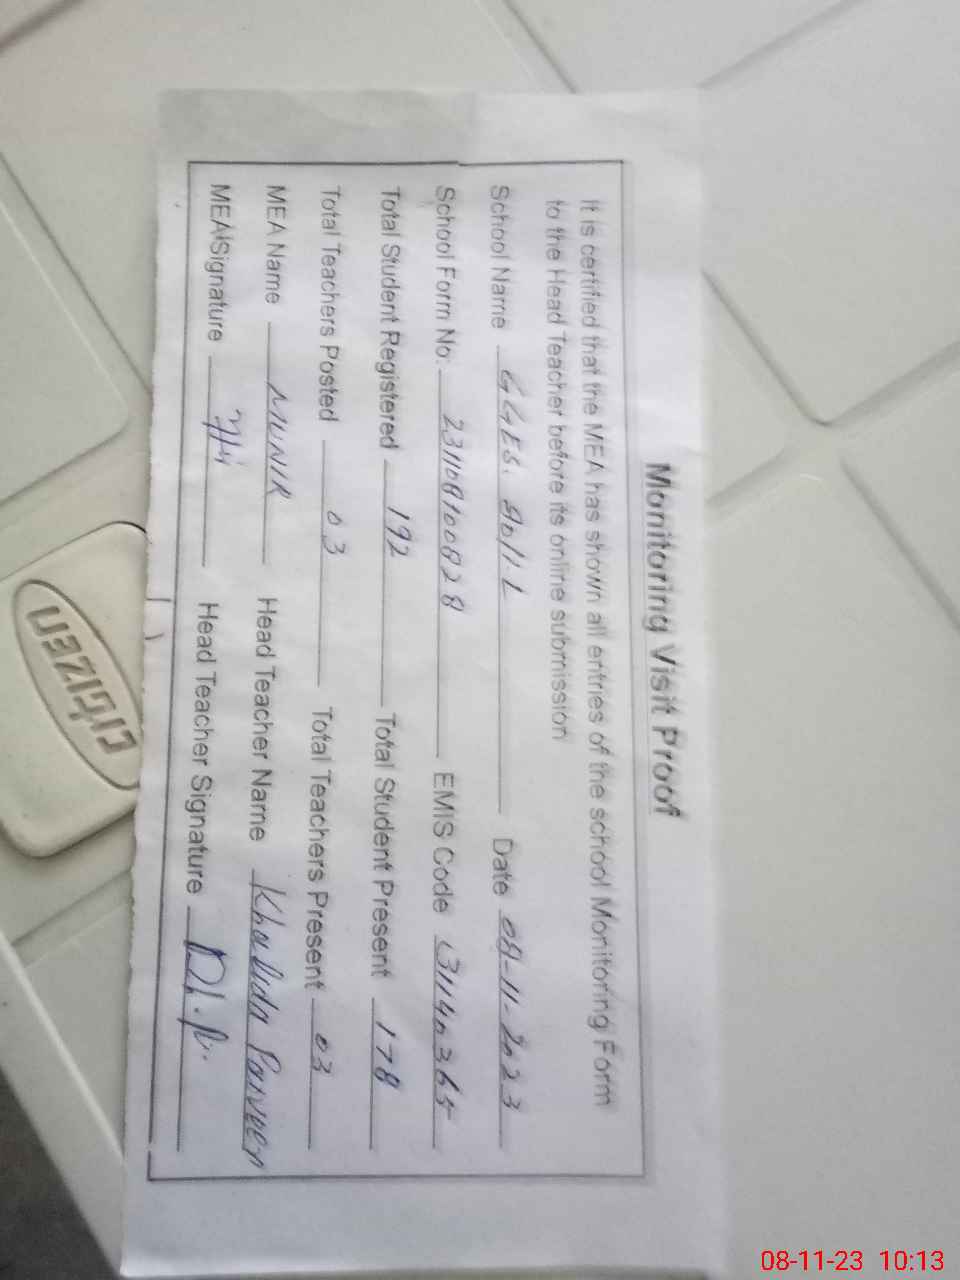 Monitoring Visit Proof
It is certified that the MEA has shown all entries of the school Monitoring Form
to the Head Teacher before its online submission
School Name GGES. 90/1.L Date 08-11-2023
School Form No: 231108100828 EMIS Code 31140365
Total Student Registered 192 Total Student Present 178
Total Teachers Posted 03 Total Teachers Present 03
MEA Name MUNIR Head Teacher Name Khalida Parveen
MEA Signature Head Teacher Signature
CITIZEN
08-11-23 10:13